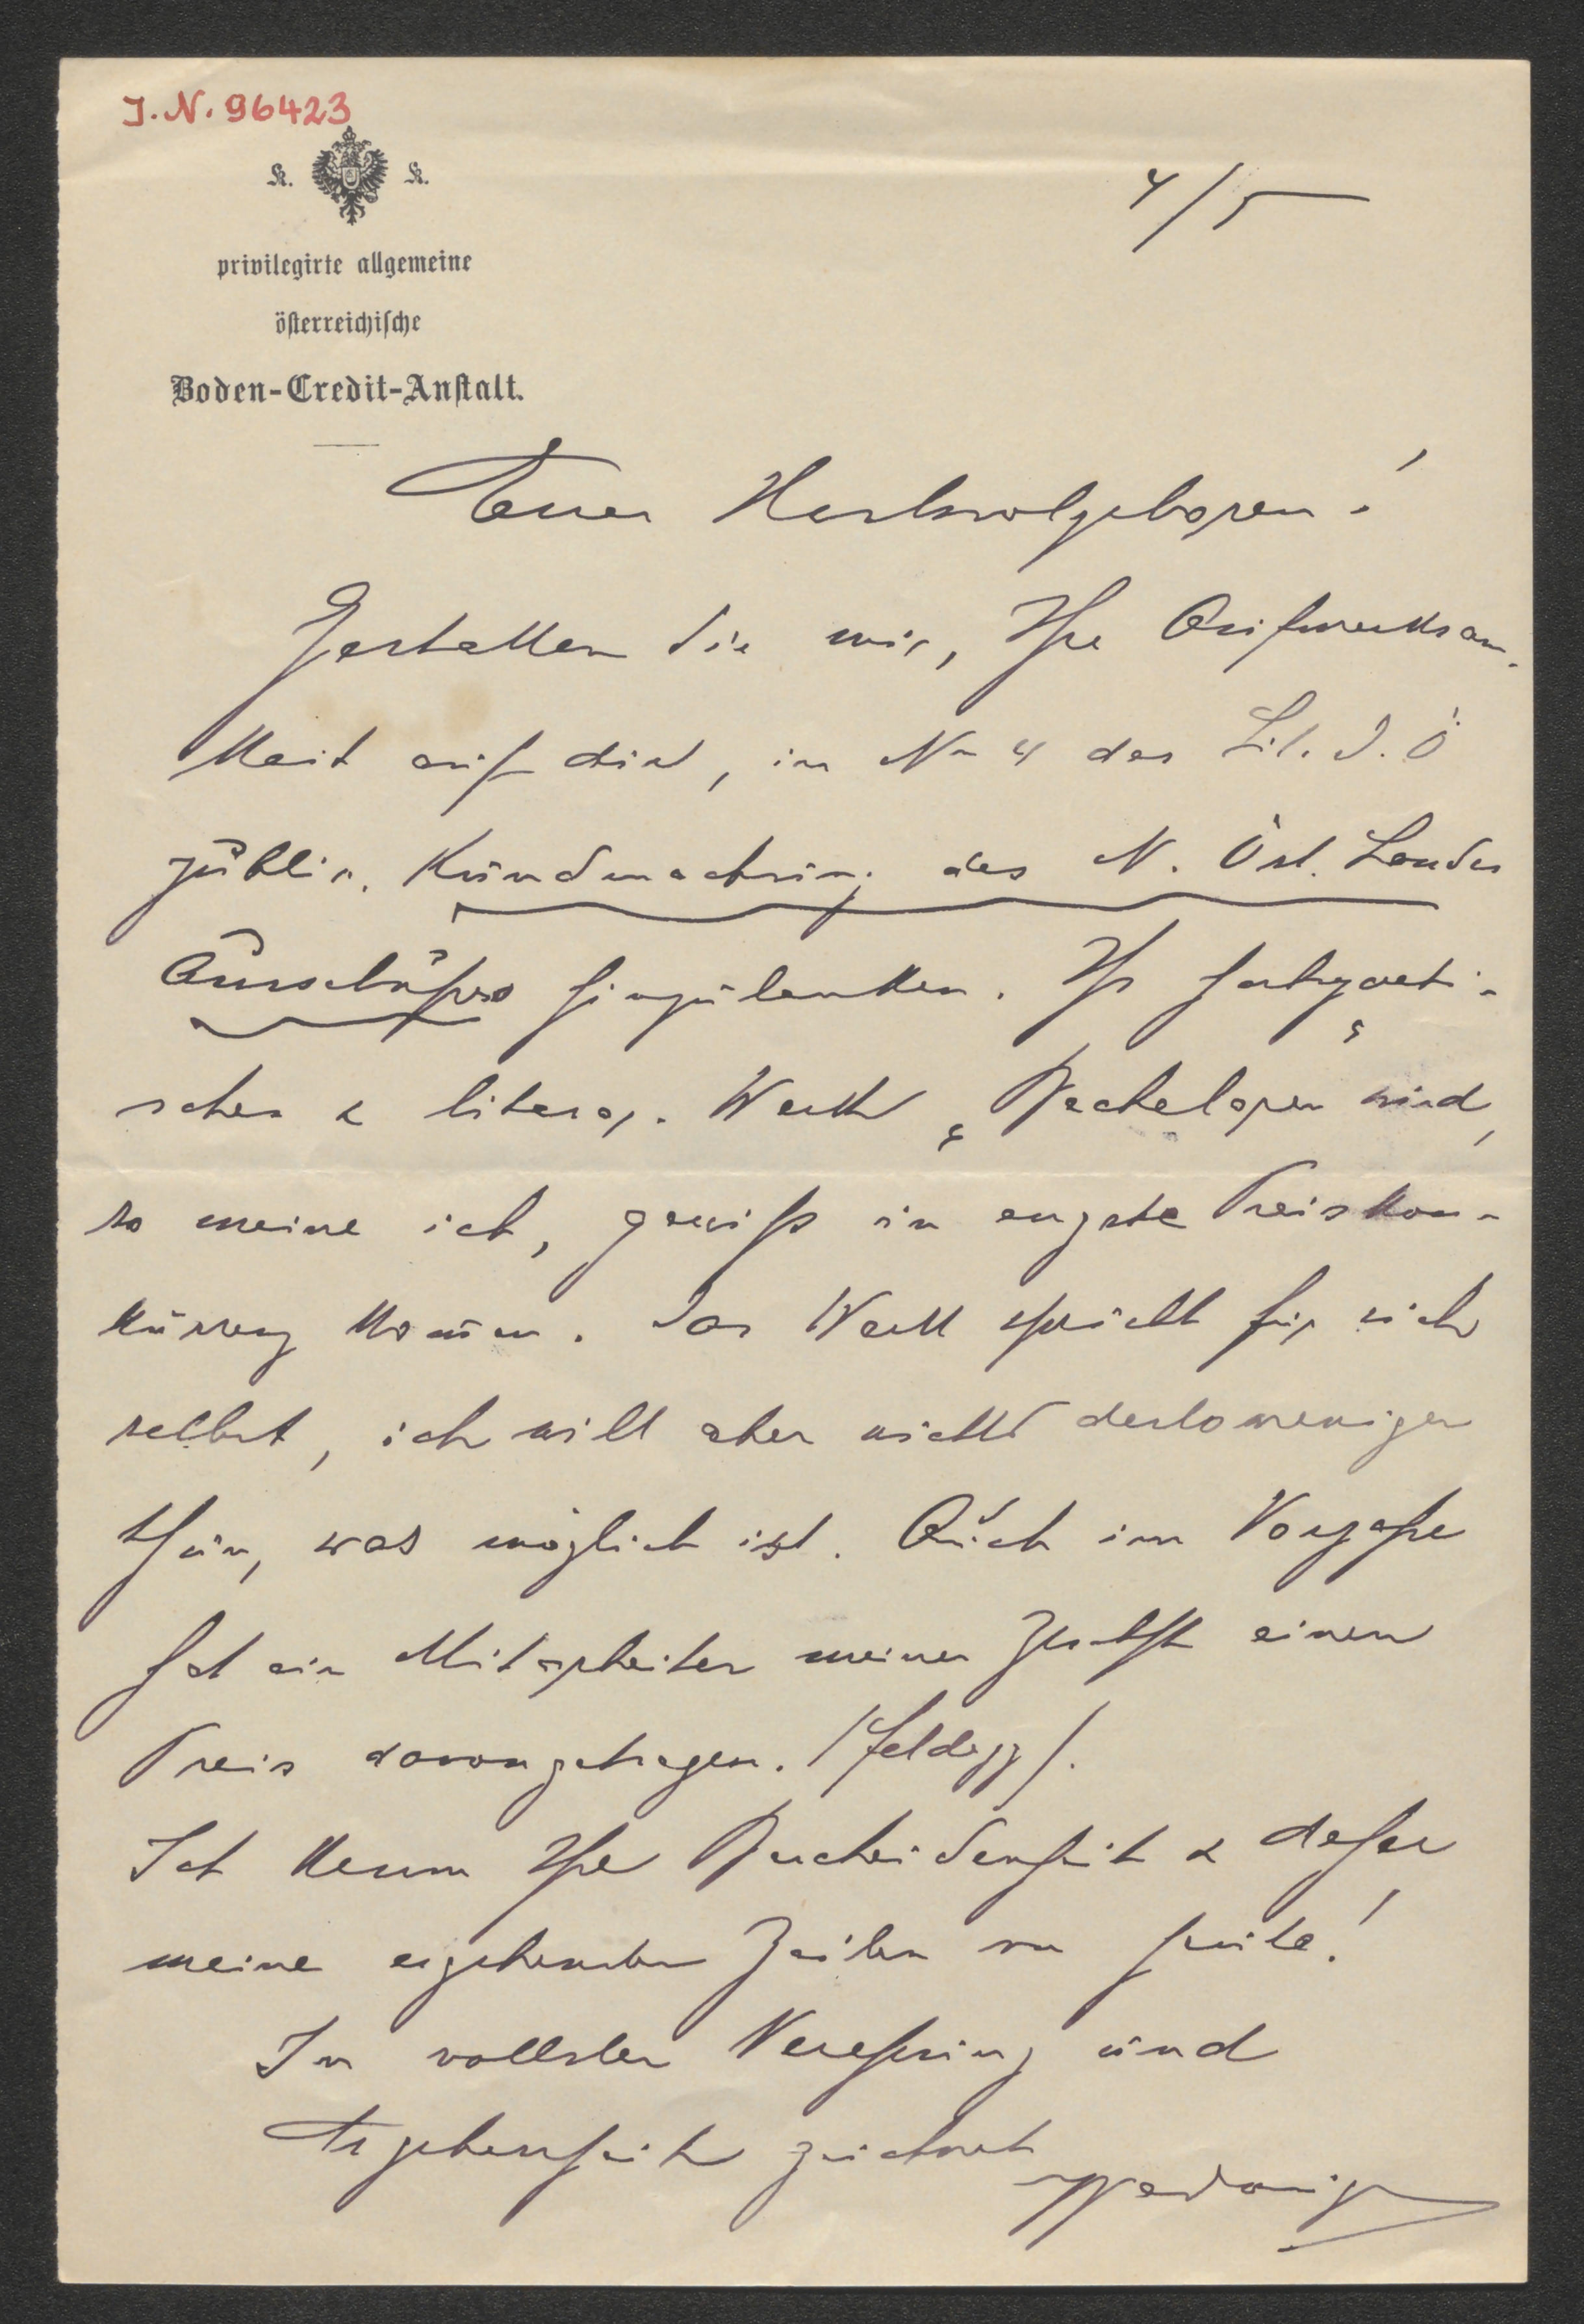 J. N. 96423
K. K.
privilegirte allgemeine
österreichische
Boden-Credit-Anstalt.
4/5
Euer Hochwolgeboren!
Gestatten Sie mir, Ihre Aufmerksam-
keit auf die, in No 4 der Lit. J. Ö
publir. Kundmachung des N. Öst. Landes
Ausschußes hinzulenken. Ihr
schen & literar. Werk wird,
so meine ich, gewiß in engste Preiskon-
kurrenz kommen. Das Werk spricht für sich
selbst, ich will aber nicht destoweniger
thun, was möglich ist. Auch im Vorjahre
hat ein Mitarbeiter meiner Ztschft einen
Preis davongetragen. (Feldegg).
Ich kenne Ihre Bescheidenheit & daher
meine ergebensten Zeilen von heute!
In vollster Verehrung und
Ergebenheit zeichnet